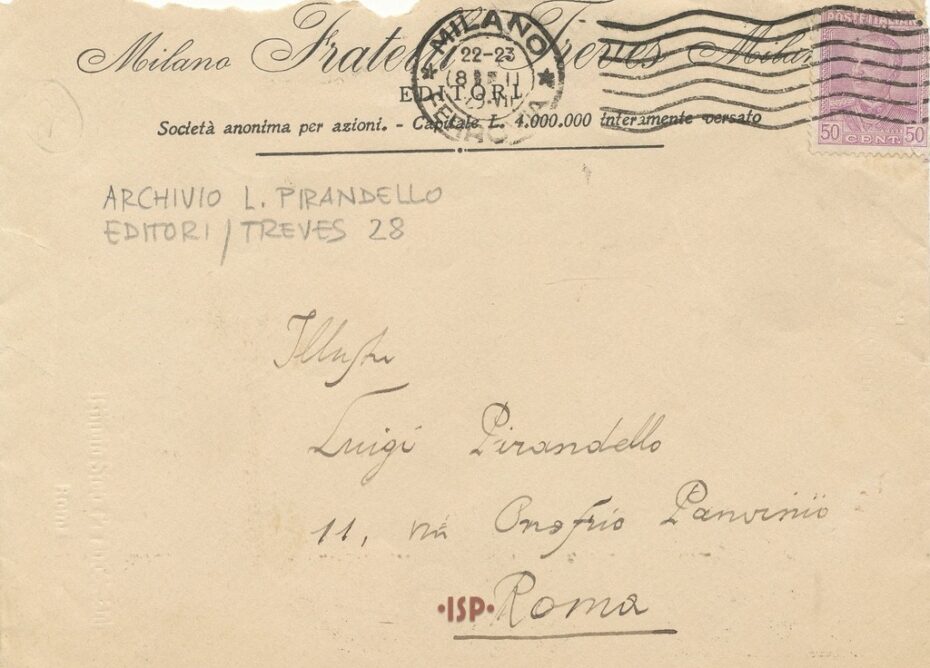 Milano Fratelli Treves Milano
EDITORI
Società anonima per azioni. - Capitale L. 4.000.000 interamente versato
MILANO
22-23
POSTE ITALIANE
50 CENT. 50
ARCHIVIO L. PIRANDELLO
EDITORI / TREVES 28
Illustre
Luigi Pirandello
11, via Onofrio Panvinio
•ISP• Roma